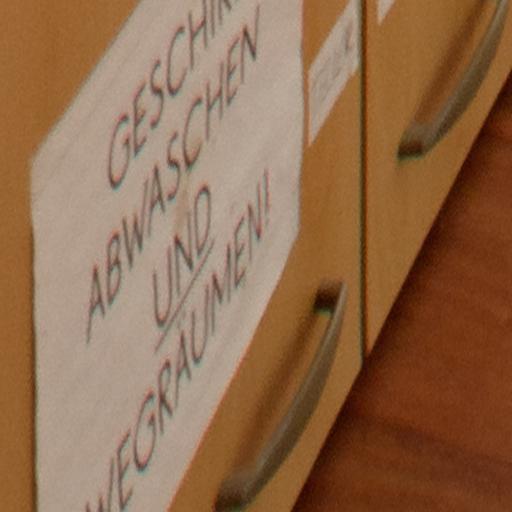 GESCHIR
ABWASCHEN
UND
WEGRÄUMEN!